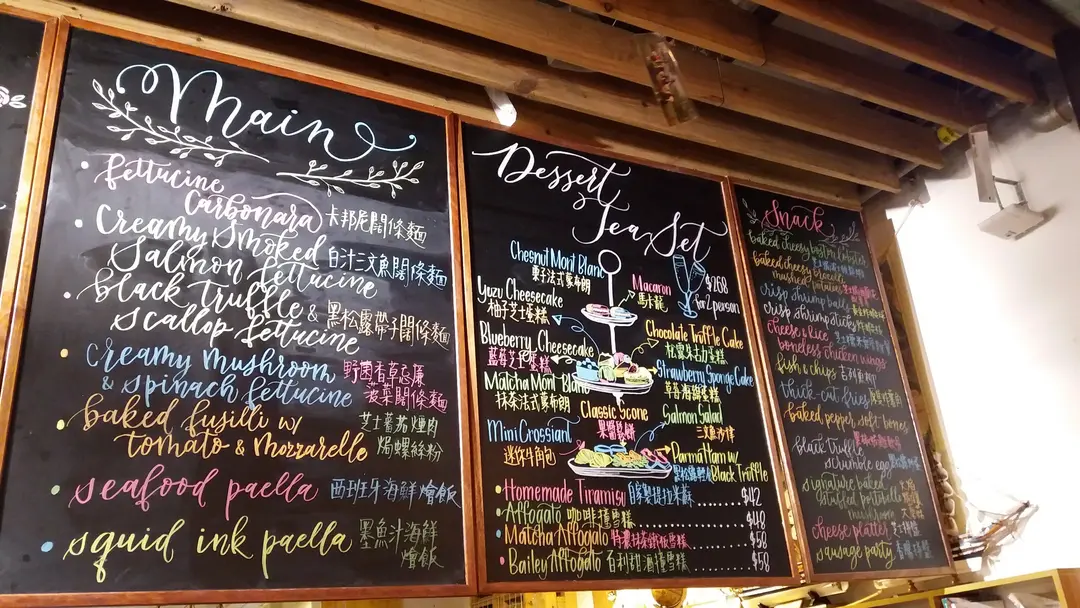 Main
fettucine
Carbonara 卡邦尼闊條麵
Creamy Smoked 白汁三文魚闊條麵
Salmon fettucine
black truffle & 黑松露帶子闊條麵
scallop fettucine
creamy mushroom 野菌香草忌廉
& spinach fettucine 菠菜闊條麵
baked fusilli w/ 芝士蕃茄煙肉
tomato & mozzarelle 焗螺絲粉
seafood paella 西班牙海鮮燴飯
squid ink paella 墨魚汁海鮮
燴飯
Dessert
Tea Set
Chesnut Mont Blanc
栗子法式蒙布朗
Macaron
馬卡龍
$268
for 2 person
Yuzu Cheesecake
柚子芝士蛋糕
Blueberry Cheesecake
藍莓芝士蛋糕
Chocolate Truffle Cake
松露朱古力蛋糕
Matcha Mont Blanc
抹茶法式蒙布朗
Strawberry Sponge Cake
草莓海綿蛋糕
Classic Scone
果醬鬆餅
Salmon Salad
三文魚沙律
Mini Crossiant
迷你牛角包
Parma Ham w/
Black Truffle
Homemade Tiramisu 自家製提拉米蘇 $42
Affogato 咖啡撞雪糕 $48
Matcha Affogato 特濃抹茶撞雪糕 $58
Bailey Affogato 百利甜酒撞雪糕 $58
Snack
baked cheesy boston lobster
baked cheesy broccoli
mashed potatoes
crisp shrimp balls
crisp shrimp sticks
cheese & rice
boneless chicken wings
fish & chips 吉列魚柳
thick-cut fries
baked pepper soft bones
black truffle
scramble egg
signature baked
stuffed portabella
mushroom
cheese platter 芝士拼盤
sausage party 香腸拼盤